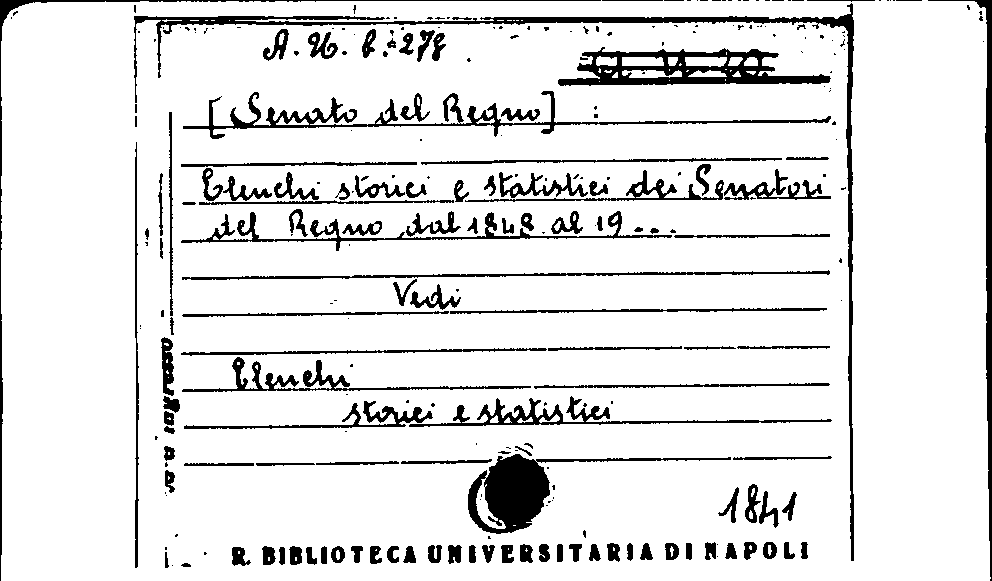 A. U. b. 278
[Senato del Regno] :
Elenchi storici e statistici dei Senatori
del Regno dal 1848 al 19...
Vedi
Elenchi
storici e statistici
1841
R. BIBLIOTECA UNIVERSITARIA DI NAPOLI